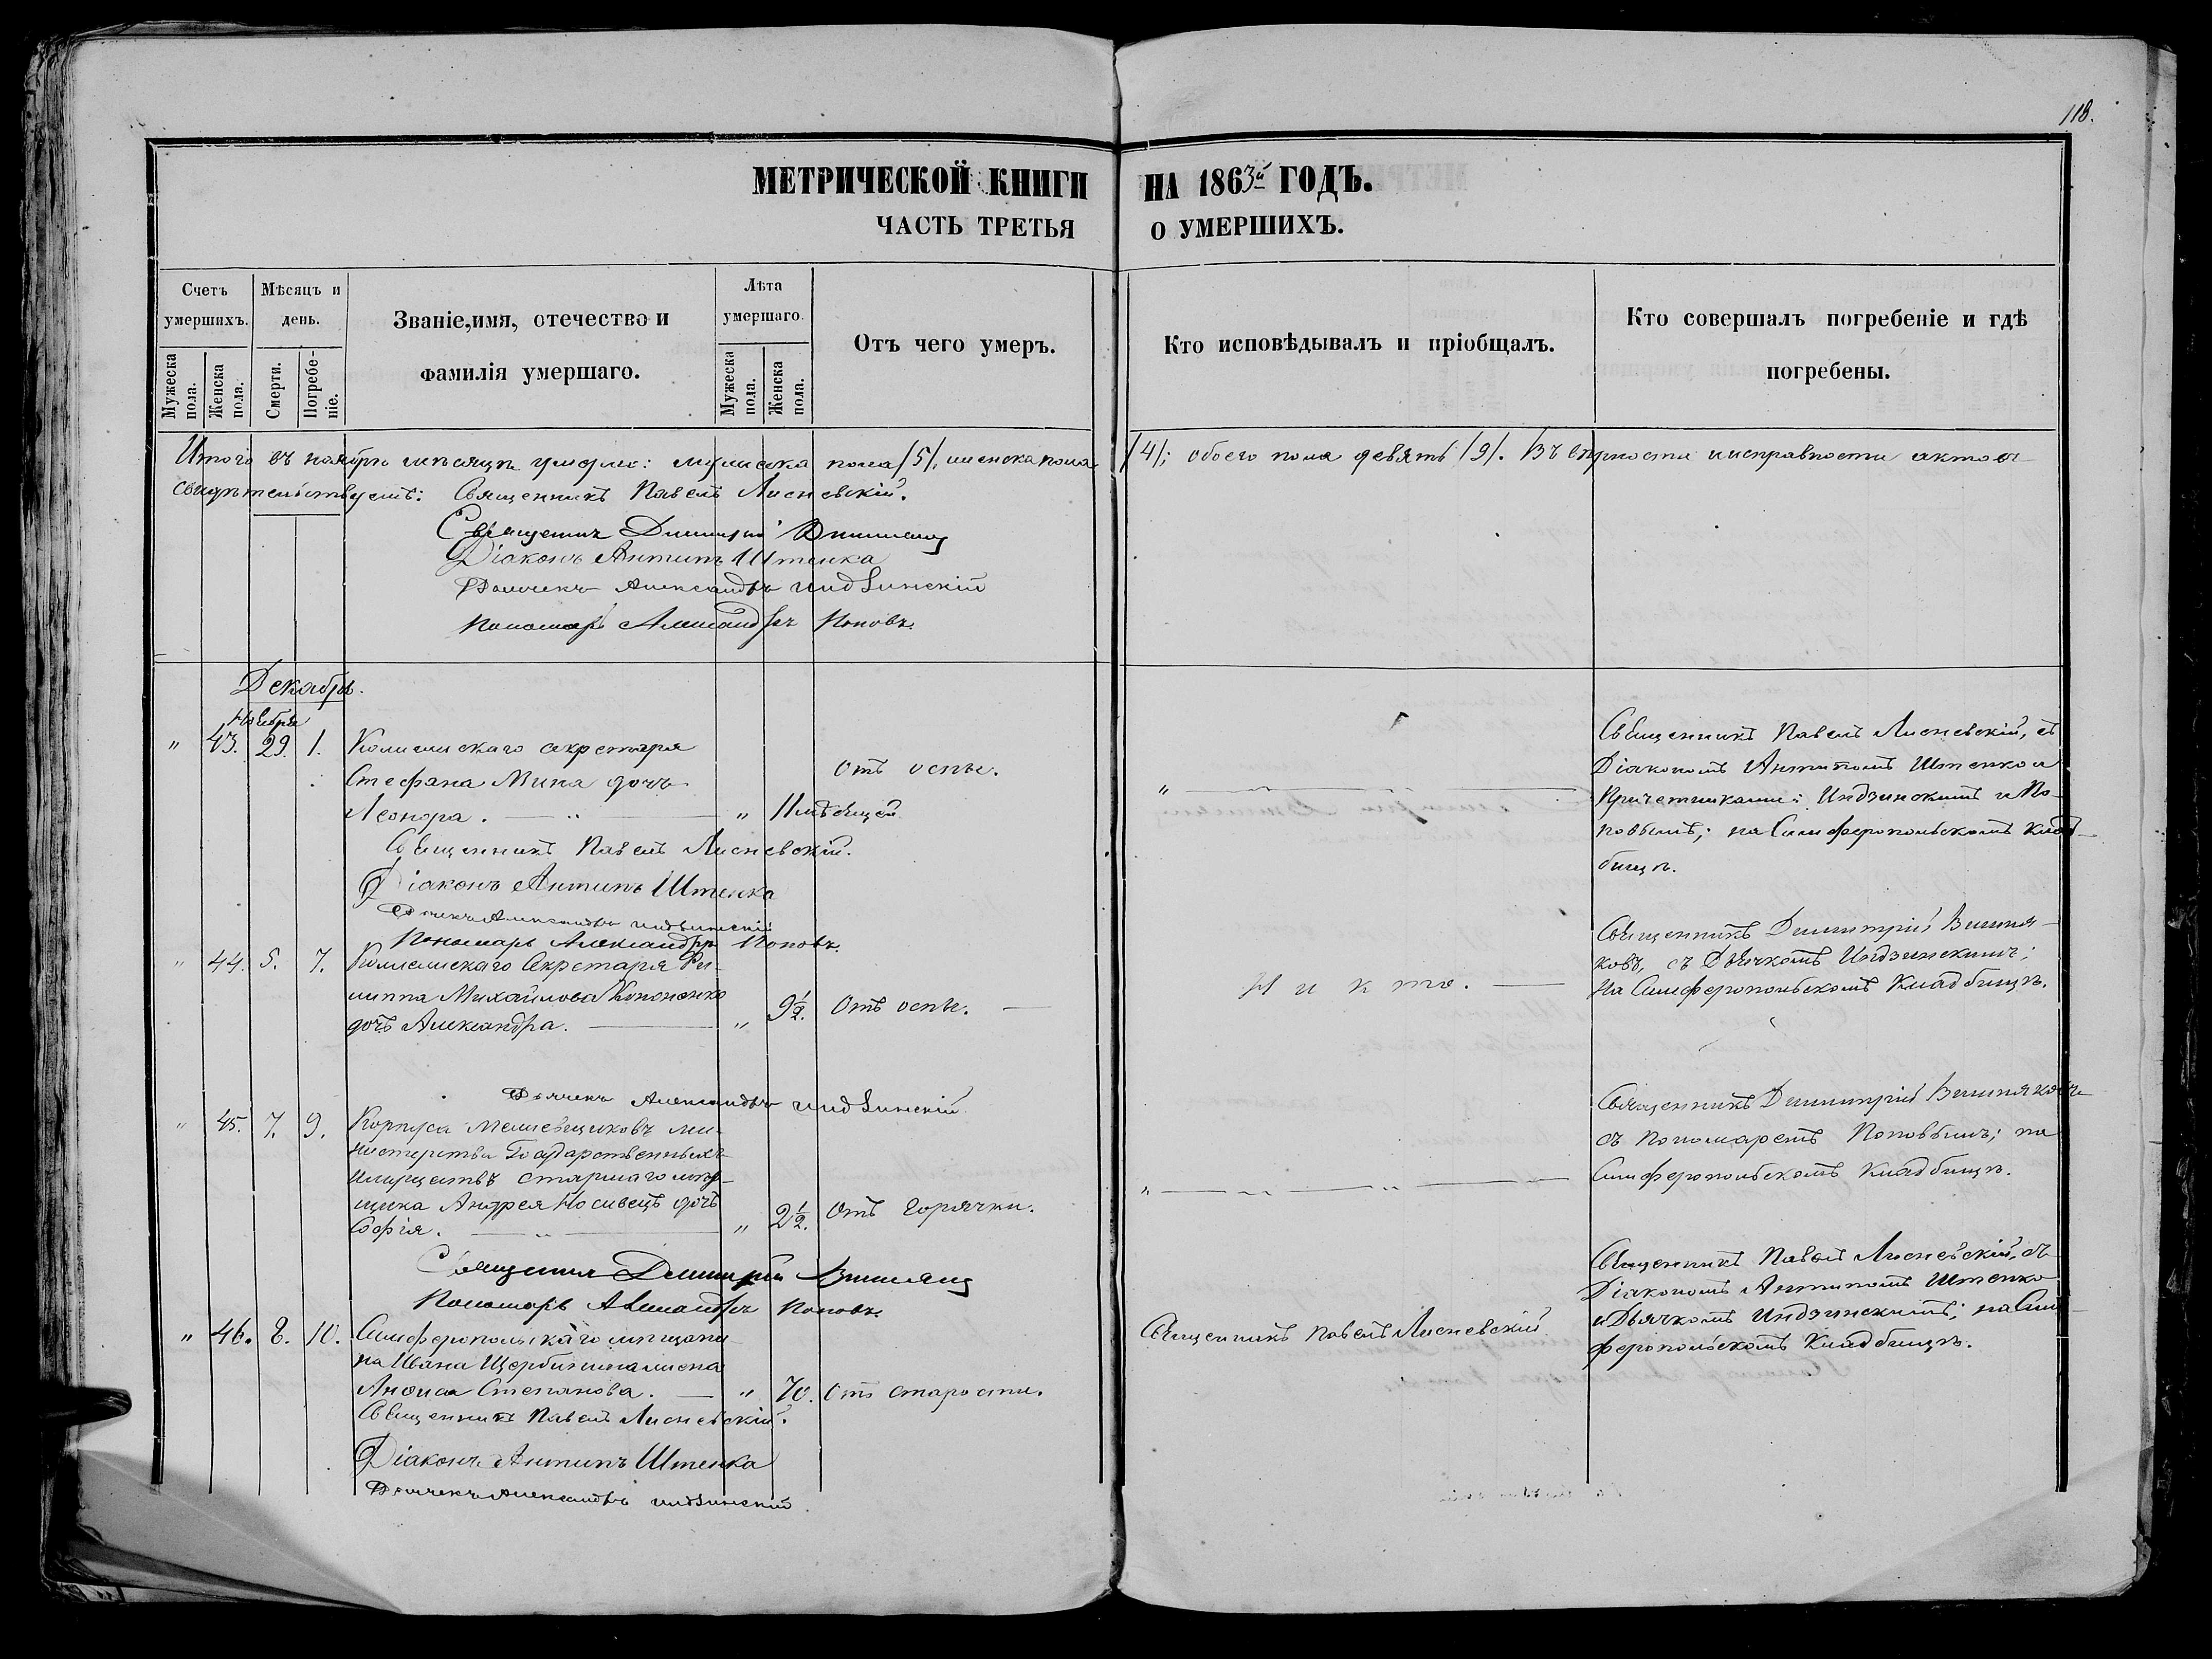 118.
МЕТРИЧЕСКОЙ КНИГИ НА 1863й ГОДЪ.
ЧАСТЬ ТРЕТЬЯ О УМЕРШИХЪ.
Счетъ умершихъ.
Мужеска пола.
Женска пола.
Мѣсяцъ и день.
Смерти.
Погребеніе.
Званіе, имя, отечество и фамилія умершаго.
Лѣта умершаго.
Мужеска пола.
Женска пола.
Отъ чего умеръ.
Кто исповѣдывалъ и пріобщалъ.
Кто совершалъ погребеніе и гдѣ погребены.
Итого въ ноябрѣ мѣсяцѣ умерло: мужеска пола /5/, женска пола /4/; обоего пола девять /9/. Въ вѣрности и исправности актовъ
свидѣтельствуемъ: Священникъ Павелъ Лисневскій.
Священникъ Димитрій
Діаконъ Антипъ Штенка
Дьячекъ Александръ Индзинскій
Пономарь Александръ Поповъ.
Декабрь.
Ноября
" 43. 29. 1. Коллежскаго секретаря
Стефана Мина дочь Отъ оспы.
Леонора. " 11 мѣсяцей
Священникъ Павелъ Лисневскій, съ
Діакономъ Антипомъ Штенкой и
Причетниками: Индзинскимъ и По-
повымъ; на Симферопольскомъ клад-
бищѣ.
Священникъ Павелъ Лисневскій.
Діаконъ Антипъ Штенка
Дьячекъ Александръ Индзинскій
Пономарь Александръ Поповъ.
" 44. 5. 7. Коллежскаго Секретаря Фи-
липпа Михайлова Кононенко
дочь Александра. " 9½. Отъ оспы.
Никто.
Священникъ Димитрій Вишня-
ковъ, съ Дьячкомъ Индзинскимъ;
на Симферопольскомъ кладбищѣ.
Дьячекъ Александръ Индзинскій
" 45. 7. 9. Корпуса Межевщиковъ Ми-
нистерства Государственныхъ
Имуществъ старшаго
Андрея Носивецъ дочь
Софія. " 2½. Отъ горячки.
Священникъ Димитрій Вишняковъ
съ Пономаремъ Поповымъ; на
Симферопольскомъ кладбищѣ.
Священникъ Димитрій
Пономарь Александръ Поповъ.
" 46. 8. 10. Симферопольскаго мѣщани-
на Ивана Щербинина жена
Анфиса Степанова. " 70. Отъ старости.
Священникъ Павелъ Лисневскій
Священникъ Павелъ Лисневскій, съ
Діакономъ Антипомъ Штенко
и Дьячкомъ Индзинскимъ; на Сим-
феропольскомъ кладбищѣ.
Священникъ Павелъ Лисневскій.
Діаконъ Антипъ Штенка
Дьячекъ Александръ Индзинскій